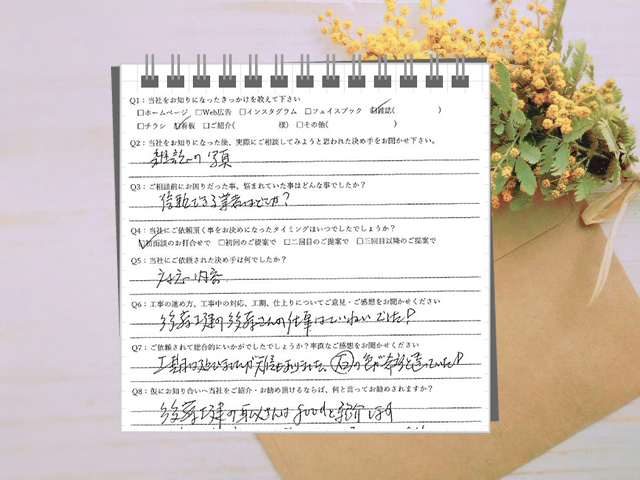 Q1:当社をお知りになったきっかけを教えて下さい
□ホームページ □Web広告 □インスタグラム □フェイスブック ☑雑誌( )
□チラシ ☑看板 □ご紹介( 様) □その他( )
Q2:当社をお知りになった後、実際にご相談してみようと思われた決め手をお聞かせ下さい。
雑誌の写真
Q3:ご相談前にお困りだった事、悩まれていた事はどんな事でしたか?
信頼できる業者はどこか?
Q4:当社にご依頼頂く事をお決めになったタイミングはいつでしたでしょうか?
☑初面談のお打合せで □初回のご提案で □二回目のご提案で □三回目以降のご提案で
Q5:当社にご依頼された決め手は何でしたか?
内容
Q6:工事の進め方、工事中の対応、工期、仕上りについてご意見・ご感想をお聞かせください
さんの仕事はていねいでした!
Q7:ご依頼されて総合的にいかがでしたでしょうか?率直なご感想をお聞かせください
工期は延びましたが天候もありました、石の色が
Q8:仮にお知り合いへ当社をご紹介・お勧め頂けるならば、何と言ってお勧めされますか?
さんは goodと紹介します